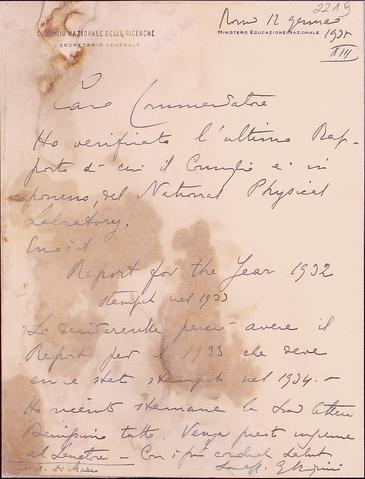 2219
CONSIGLIO NAZIONALE DELLE RICERCHE
IL SEGRETARIO GENERALE
Roma 12 gennaio 1935
MINISTERO EDUCAZIONE NAZIONALE
XIII
Caro Commendatore
Ho verificato l'ultimo Rap-
porto di cui il Consiglio è in
possesso, del National Physical
Laboratory.
Esso è il
Report for the Year 1932
stampato nel 1933
Si desidererebbe perciò avere il
Report per il 1933 che deve
essere stato stampato nel 1934.-
Ho ricevuto stamane la Sua lettera
Benissimo tutto. Venga presto insieme
al Senatore - Con i più cordiali saluti